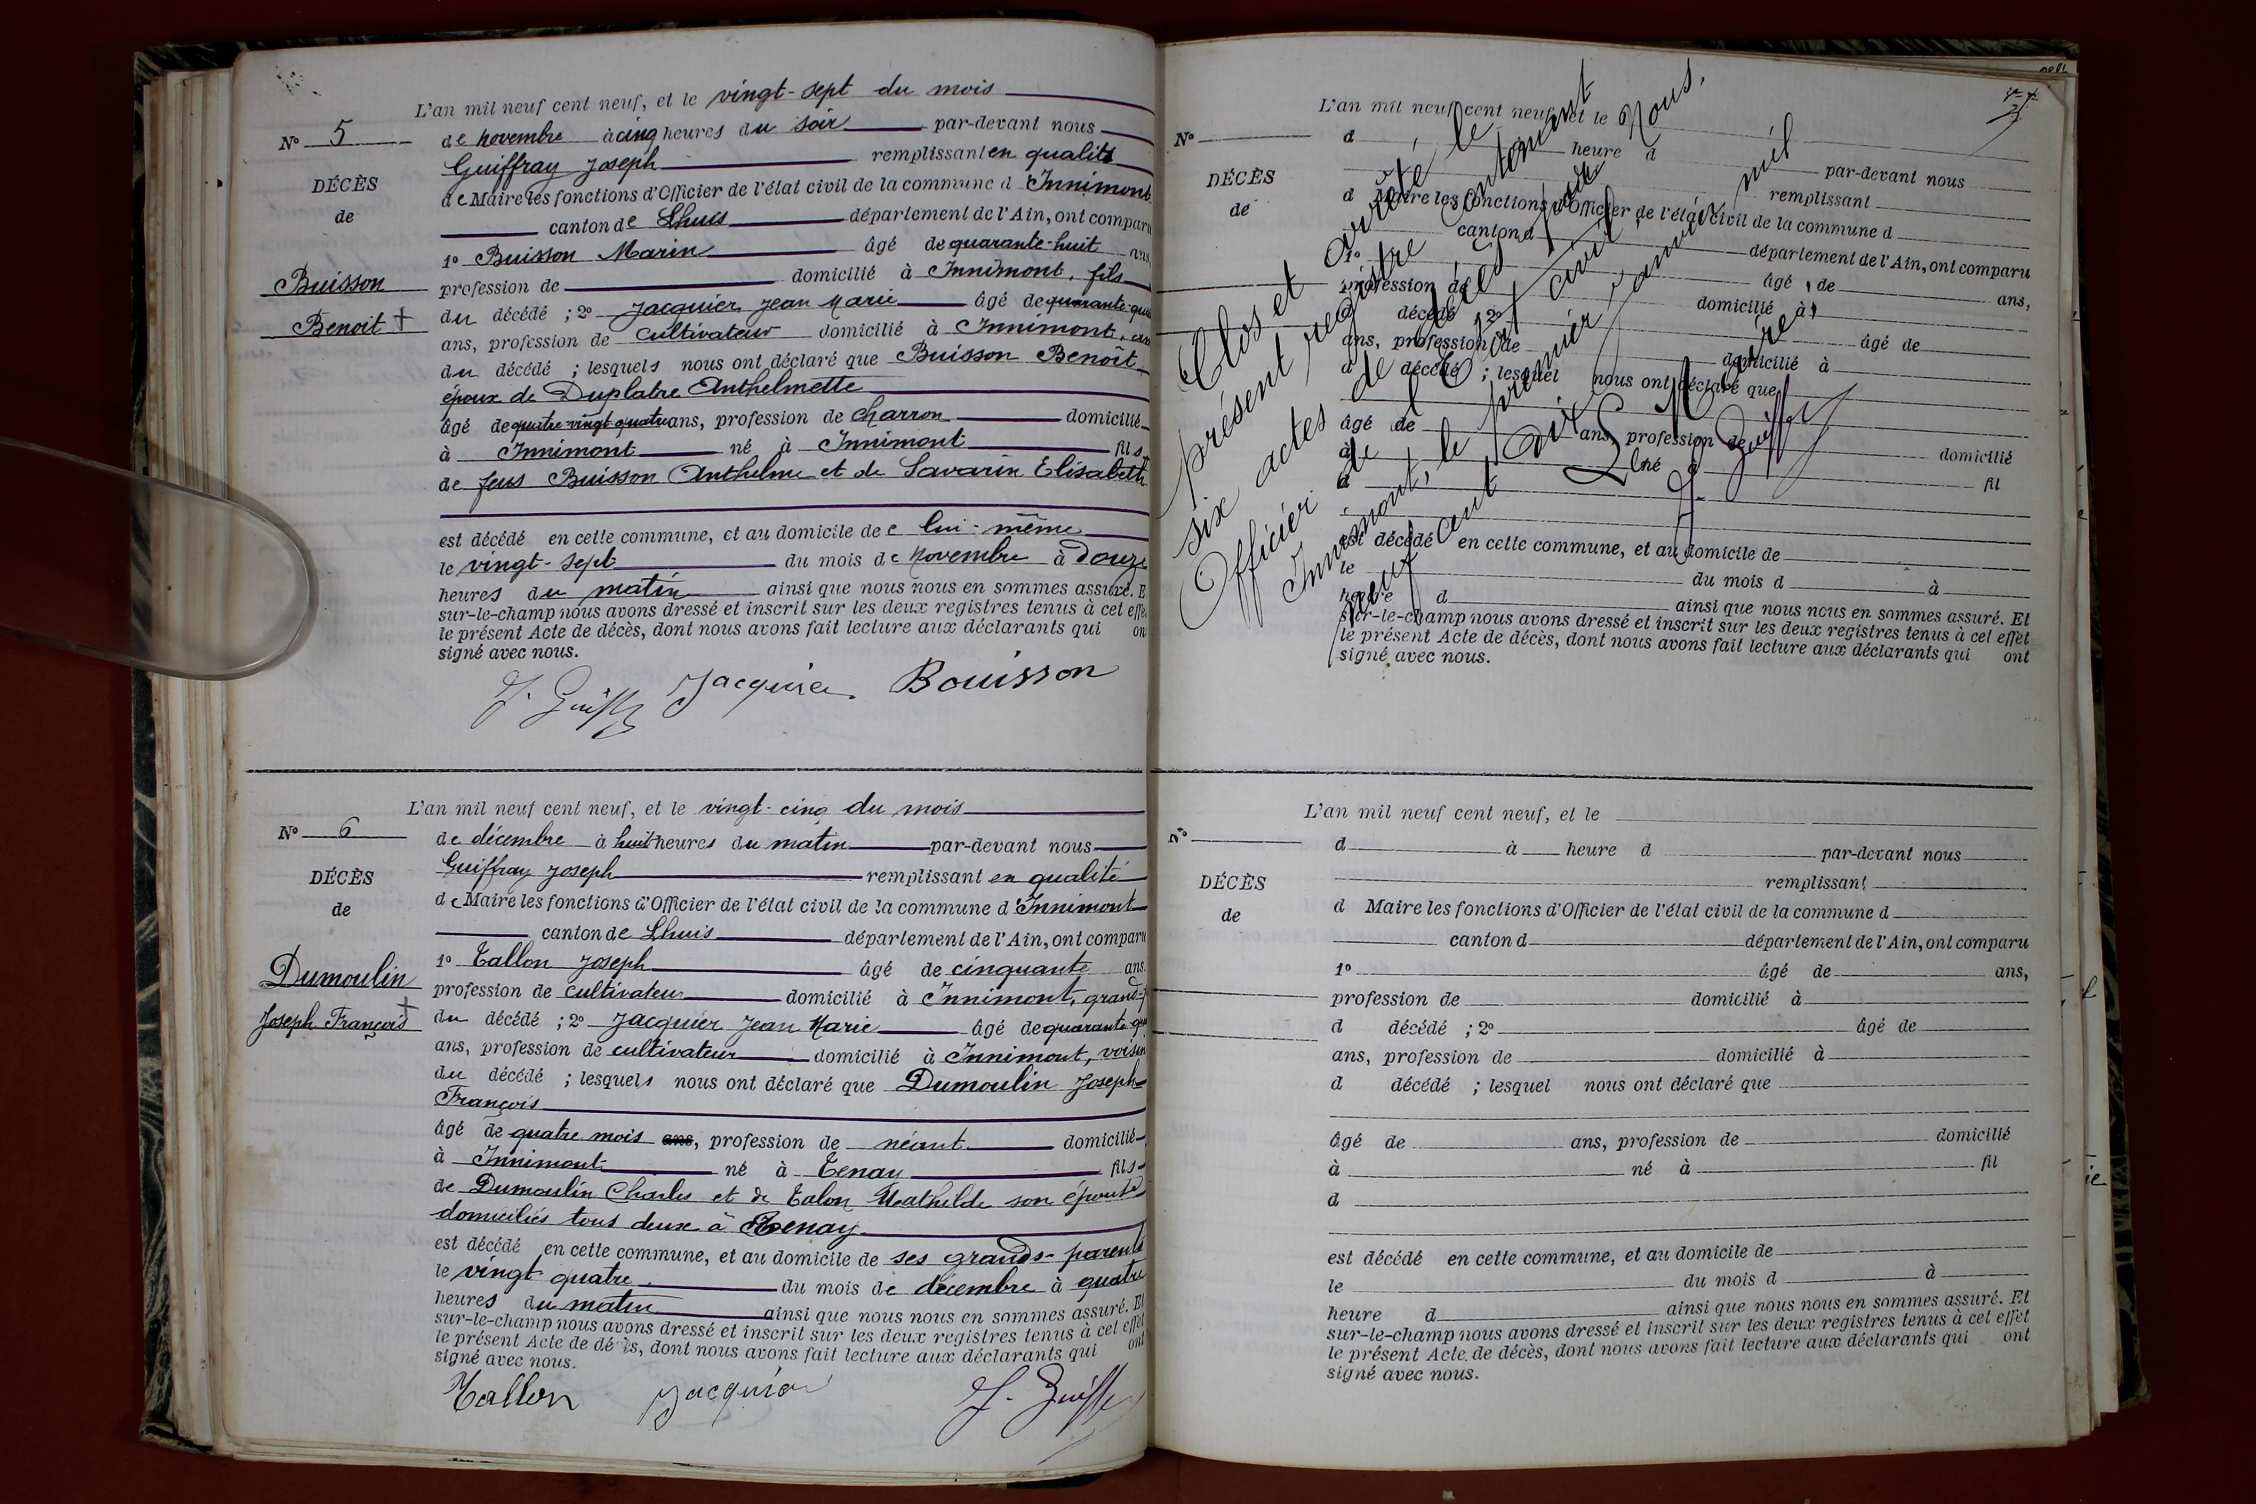 L'an mil neuf cent neuf, et le vingt-sept du mois
N° 5
de novembre à cinq heures du soir par-devant nous
Guiffray Joseph remplissant en qualité
DÉCÈS
de Maire les fonctions d'Officier de l'état civil de la commune d'Innimont
de
canton de Lhuis département de l'Ain, ont comparu
1° Buisson Marin âgé de quarante-huit ans,
Buisson
profession de domicilié à Innimont, fils
Benoit +
du décédé ; 2° Jacquier Jean Marie âgé de quarante
ans, profession de cultivateur domicilié à Innimont,
du décédé ; lesquels nous ont déclaré que Buisson Benoît
époux de Duplatre Anthelmette
âgé de quatre-vingt-quatre ans, profession de charron domicilié
à Innimont né à Innimont fils
de feus Buisson Anthelme et de Savarin Elisabeth
est décédé en cette commune, et au domicile de lui-même
le vingt-sept du mois de novembre à douze
heures du matin ainsi que nous nous en sommes assuré. E
sur-le-champ nous avons dressé et inscrit sur les deux registres tenus à cet effe
le présent Acte de décès, dont nous avons fait lecture aux déclarants qui on
signé avec nous.
Jacquier Bouisson
L'an mil neuf cent neuf, et le vingt-cinq du mois
N° 6
de décembre à huit heures du matin par-devant nous
Guiffray Joseph remplissant en qualité
DÉCÈS
de Maire les fonctions d'Officier de l'état civil de la commune d'Innimont
de
canton de Lhuis département de l'Ain, ont comparu
1° Tallon Joseph âgé de cinquante ans
Dumoulin
profession de cultivateur domicilié à Innimont, grand-p
Joseph François +
du décédé ; 2° Jacquier Jean Marie âgé de quarante
ans, profession de cultivateur domicilié à Innimont, voisin
du décédé ; lesquels nous ont déclaré que Dumoulin Joseph
François
âgé de quatre mois ans, profession de néant domicilié
à Innimont né à Tenay fils
de Dumoulin Charles et de Talon Mathilde son épouse
domiciliés tous deux à Tenay
est décédé en cette commune, et au domicile de ses grands-parents
le vingt quatre du mois de décembre à quatre
heures du matin ainsi que nous nous en sommes assuré. Et
sur-le-champ nous avons dressé et inscrit sur les deux registres tenus à cet effet
le présent Acte de décès, dont nous avons fait lecture aux déclarants qui ont
signé avec nous.
Tallon Jacquier
L'an mil neuf cent neuf, et le
N°
d heure d par-devant nous
remplissant
DÉCÈS
d Maire les fonctions d'Officier de l'état civil de la commune d
de
canton d département de l'Ain, ont comparu
1° âgé de ans,
profession de domicilié à
d décédé ; 2° âgé de
ans, profession de domicilié à
d décédé ; lesquel nous ont déclaré que
âgé de ans, profession de domicilié
à né à fil
d
est décédé en cette commune, et au domicile de
le du mois d à
heure d ainsi que nous nous en sommes assuré. Et
sur-le-champ nous avons dressé et inscrit sur les deux registres tenus à cet effet
le présent Acte de décès, dont nous avons fait lecture aux déclarants qui ont
signé avec nous.
Clos et arrêté le
présent registre contenant
six actes de décès par Nous,
Officier de l'Etat civil, à
Innimont, le premier janvier mil
neuf cent dix
Le Maire,
L'an mil neuf cent neuf, et le
N°
d à heure d par-devant nous
remplissant
DÉCÈS
d Maire les fonctions d'Officier de l'état civil de la commune d
de
canton d département de l'Ain, ont comparu
1° âgé de ans,
profession de domicilié à
d décédé ; 2° âgé de
ans, profession de domicilié à
d décédé ; lesquel nous ont déclaré que
âgé de ans, profession de domicilié
à né à fil
d
est décédé en cette commune, et au domicile de
le du mois d à
heure d ainsi que nous nous en sommes assuré. Et
sur-le-champ nous avons dressé et inscrit sur les deux registres tenus à cet effet
le présent Acte de décès, dont nous avons fait lecture aux déclarants qui ont
signé avec nous.